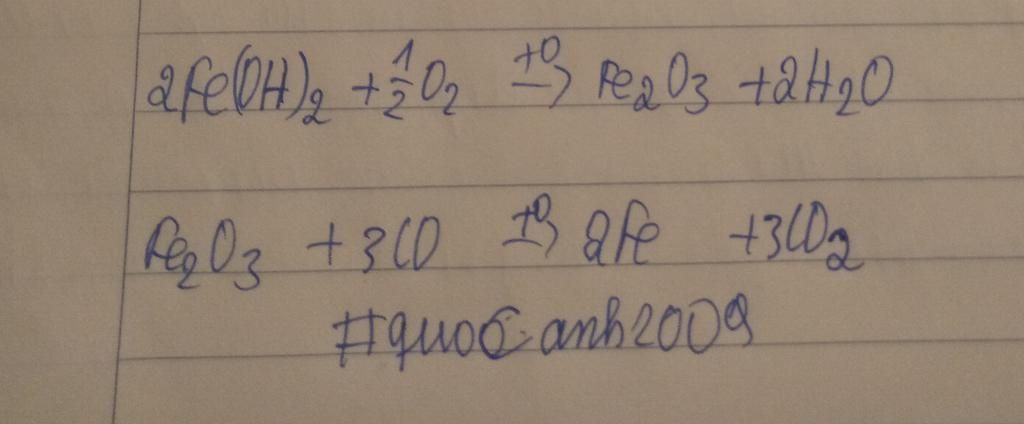 2Fe(OH)₂ + ½O₂ →(t⁰) Fe₂O₃ + 2H₂O
Fe₂O₃ + 3CO →(t⁰) 2Fe + 3CO₂
#quoc.anh2009